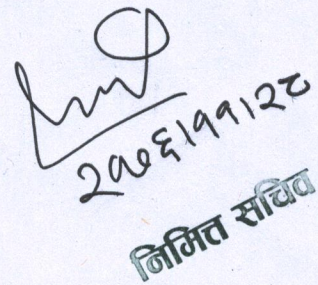 २०७६।११।२८
निमित्त सचिव